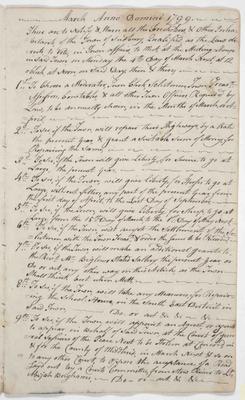 March Anno Domini 1799.
These are to Notify & Warn all the Freeholders & Other Inhabitants
of the Town of Sudbury Qualified as the Law directs
to Vote in Town affairs to Meet at the Meeting House
in Said Town on Monday the 4th Day of March Next at 12
oClock at Noon on Said Day then & there
1st To Choose a Moderator, Town Clerk Selectmen Town Treasr
Assessors, Constables & all other Town Officers Required by
Law to be annually chosen in the Months of March &
April
2ly To See if the Town will repair their Highways by a Rate
the present year & grant a Suitable Sum of Money for
Repairing the Same
3ly To See if the Town will give Liberty for Swine to go at
Large the present year
4ly To See if the Town will give Liberty for Horses to go at
Large without fetters any part of the present year from
the first day of April to the Last Day of September
5ly To See if the Town will give Liberty for Sheep to go at
Large from the 15th Day of to the Day of Next
6ly To See if the Town will accept the Settlement of the
with the Town & the Same to be
7ly To See if the Town will make an additional grant to
the Revd Mr. Bigelows Salary the present Year or
Do or act any other way in this Article as the Town
Shall think best when Mett
8ly To See if the Town will take any Measures for Repairing
the School House in the South East District in
Said Town Do or act &c &c &c
9ly To See if the Town will appoint an Agent or agents
to appear in behalf of the Town at the Court of General
Sessions of the Peace Next to be Holden at Concord in
& for the County of Middlesex in March Next & so on
to any other Court to Oppose the acceptance of a Road
Laid out by a Courts Committee from
Majah Bingham Do or act &c &c